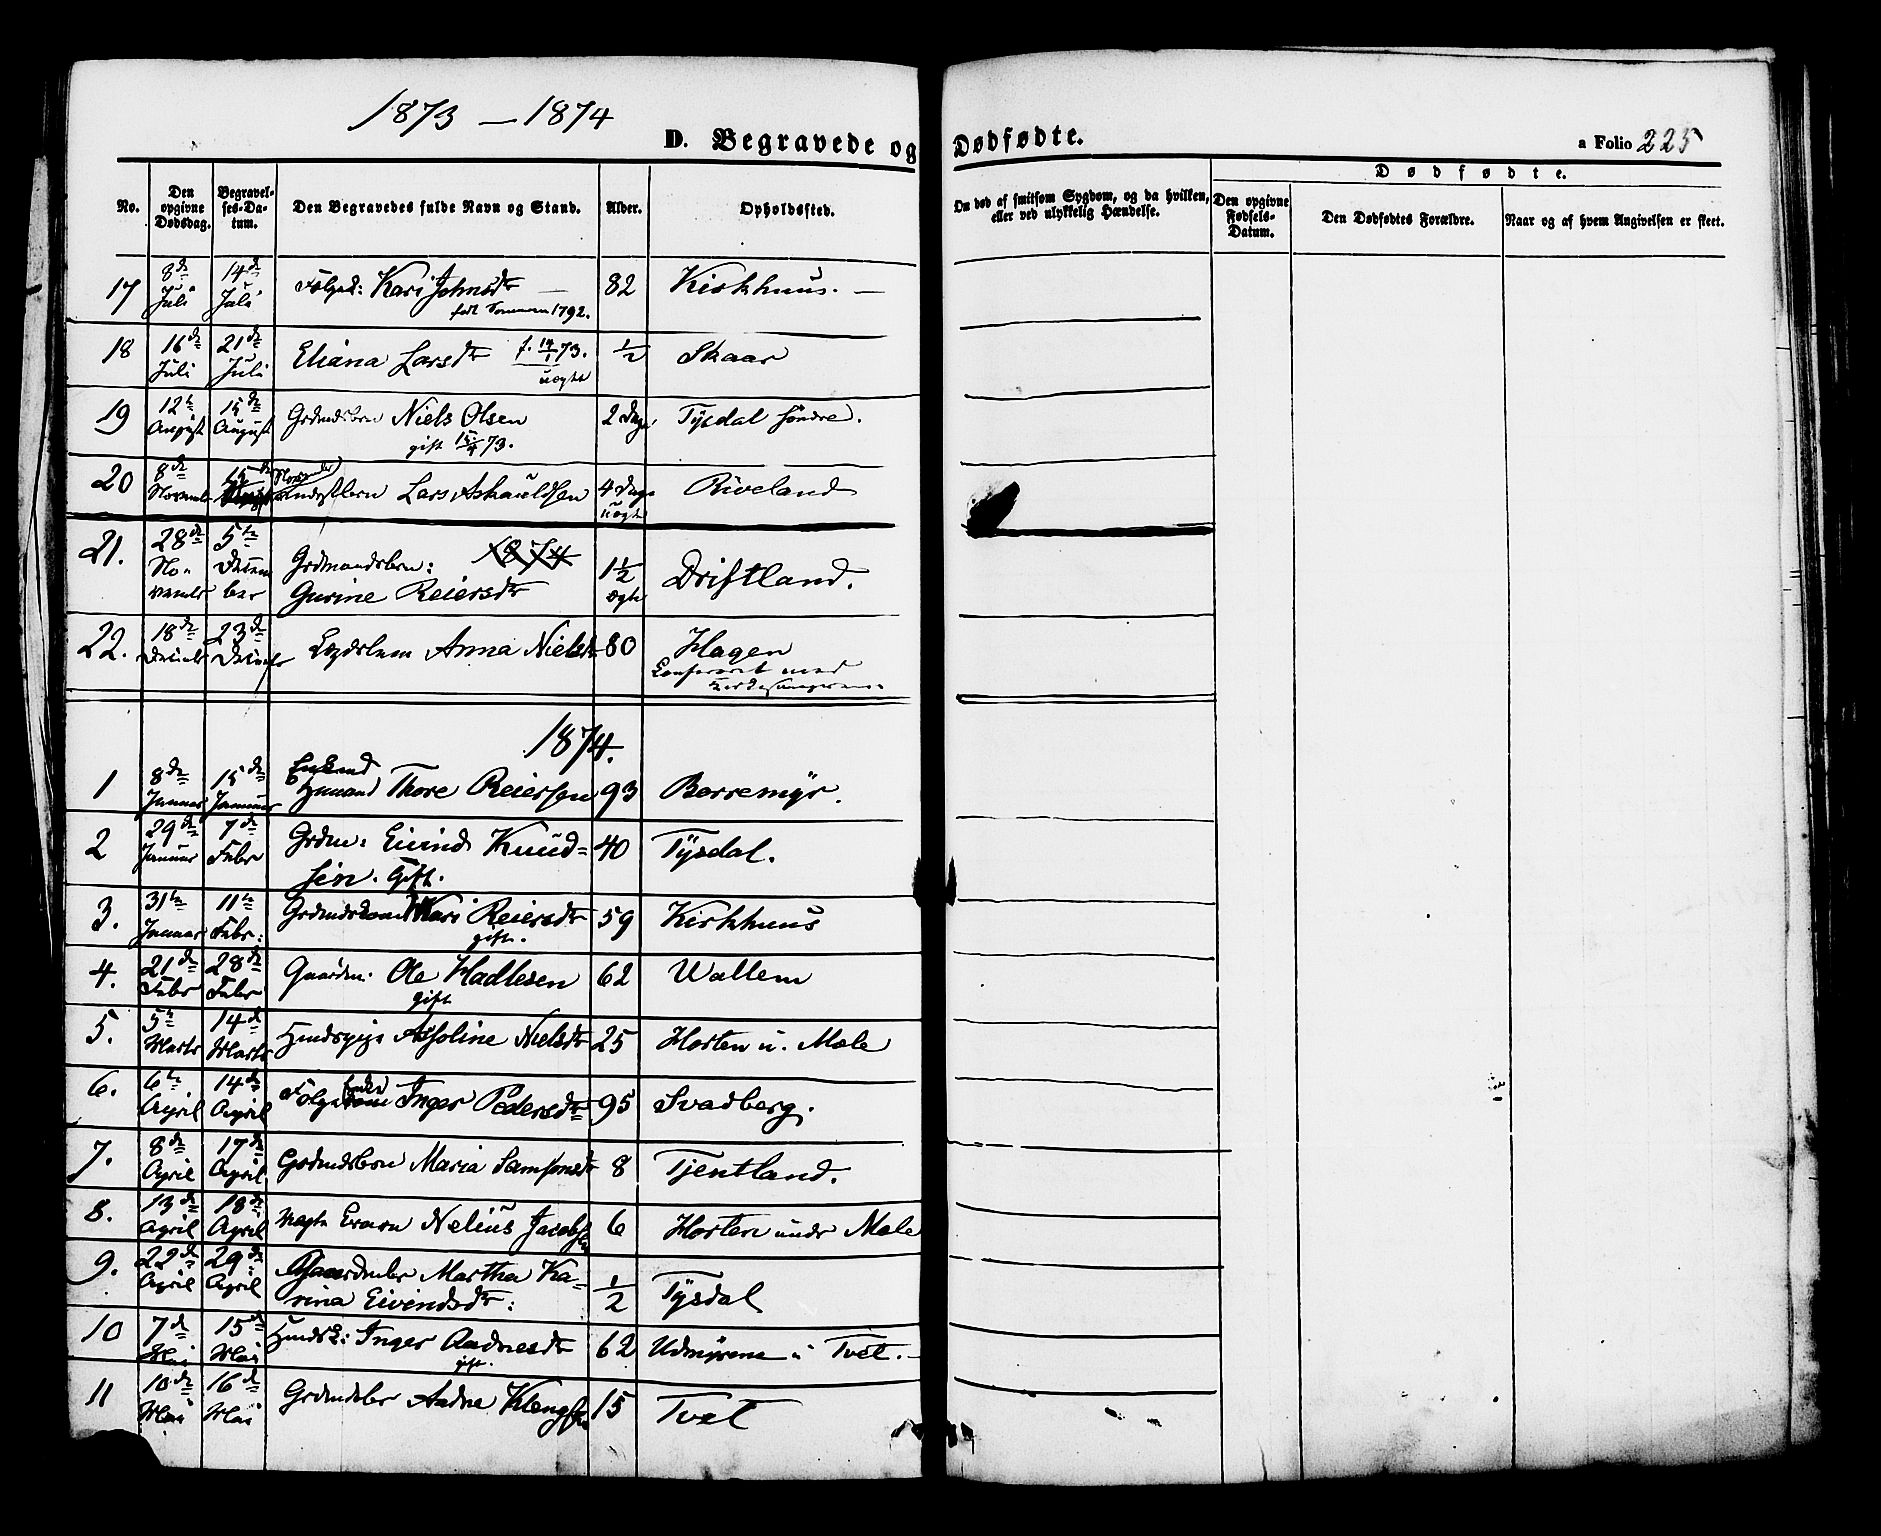 1873 — 1874
D. Begravede og Dødfødte.
a Folio 225
No.
Den opgivne Dødsdag.
Begravelses-Datum.
Den Begravedes fulde Navn og Stand.
Alder.
Opholdssted.
Om død af smitsom Sygdom, og da hvilken, eller ved ulykkelig Hændelse.
Dødfødte.
Den opgivne Fødsels-Datum.
Den Dødfødtes Forældre.
Naar og af hvem Angivelsen er skeet.
17 8de Juli 14de Juli Folgek: Kari Johnsdtr — 82 Kirkhuus. —
født Sommeren 1792.
18 16de Juli 21de Juli Eliana Larsdtr f. 14/1 73. 1/2 Skaar
uægte
19 12te August 15de August Grdmdsbrn Niels Olsen 2 Dage Tysdal søndre.
73.
20 8de Novemb 15de November Lars Askauldsen 4 Dage Riveland
uægte
21. 28de November 5te December Grdmandsbrn: 1874
Gurine Reiersdtr 1 1/2 ægte Driftland.
22. 18de Decembr 23de Decembr Lægdslem Anna Nielsdtr 80 Hagen
Confereret med
1874.
1 8de Januar 15de Januar Enkemd
Thore Reiersen 93 Berremyr.
2 29de Januar 7de Febr Grdm: Eivind Knud- 40 Tysdal.
sen. Gift.
3. 31te Januar 11te Febr: Kari Reiersdtr 59 Kirkhuus
gift.
4. 21de Febr 28de Febr Gaardm. Ole Hadlesen 62 Wallem
gift
5. 5te Marts 14de Marts Huuspige Asseline Nielsdtr 25 Horten u. Mæle
6. 6te April 14de April Folge Enke Inger Pedersdtr 95 Svadberg.
7. 8de April 17de April Grdmdsbrn Maria Samsonsdtr 8 Tjentland.
8. 13de April 18de April Nelius Jacobsen 6 Horten undr Mæle
9. 22de April 29de April Gaardmbr Martha Ka-
rina Eivindsdtr: 1/2 Tysdal
10 7de Mai 15de Mai Huusk: Inger Aadnesdtr 62 Udmyrene u Tvet. —
gift.
11 10de Mai 16de Mai Grdmdsbr Aadne Klengsen 15 Tvet